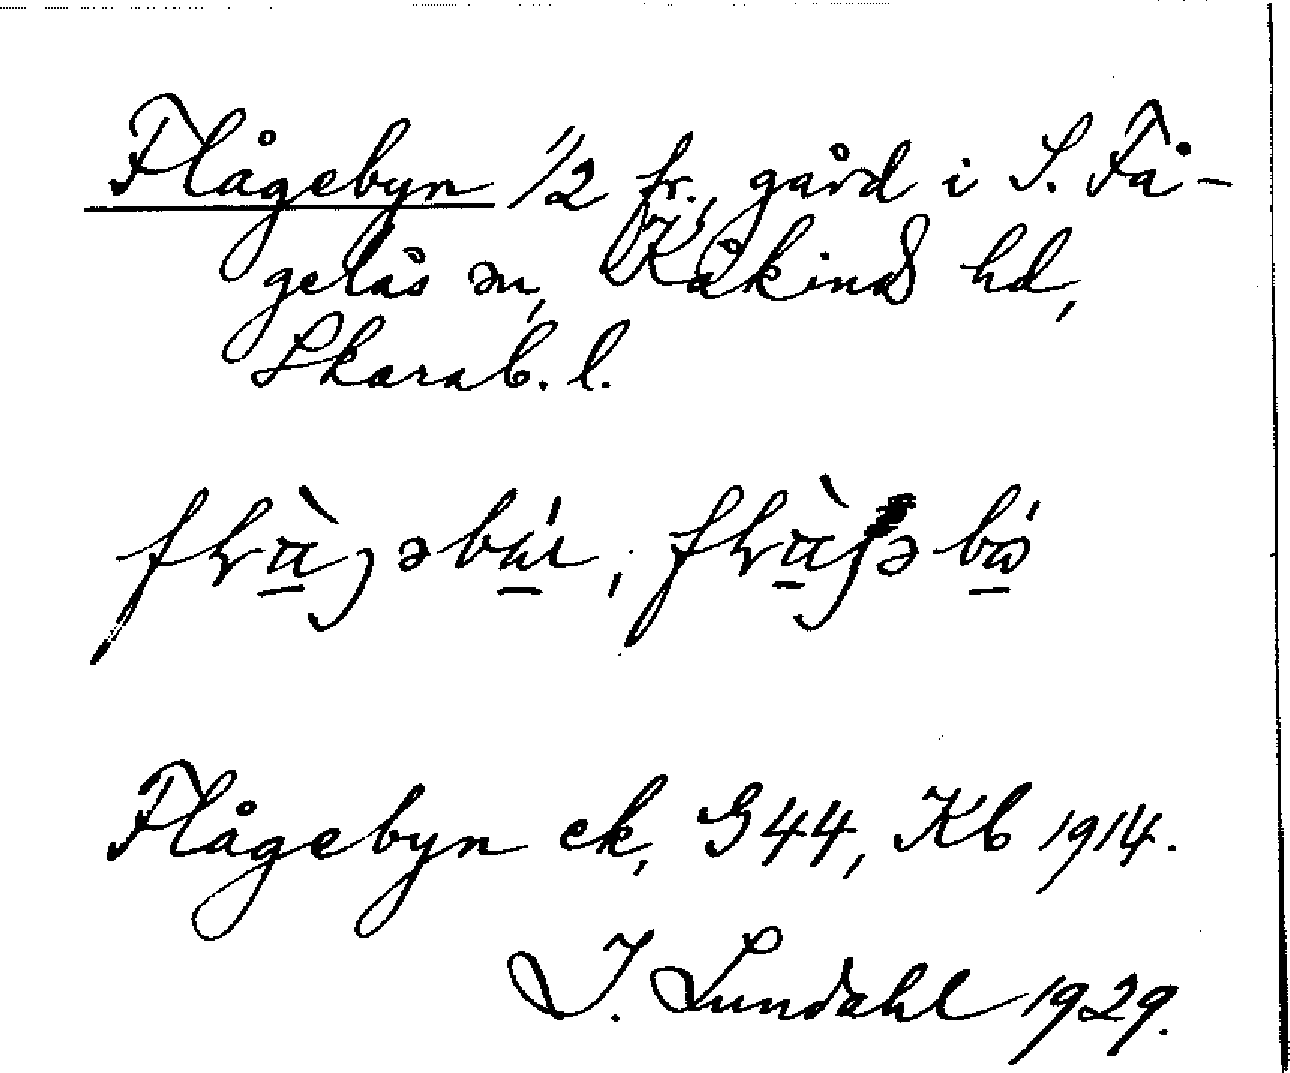 Flågebyn 1/2 fr., gård i S. Få-
gelås sn, Kåkinds hd,
Skarab. l.
Flågebyn ek, G44, Kb 1914.
I. Lundahl 1929.